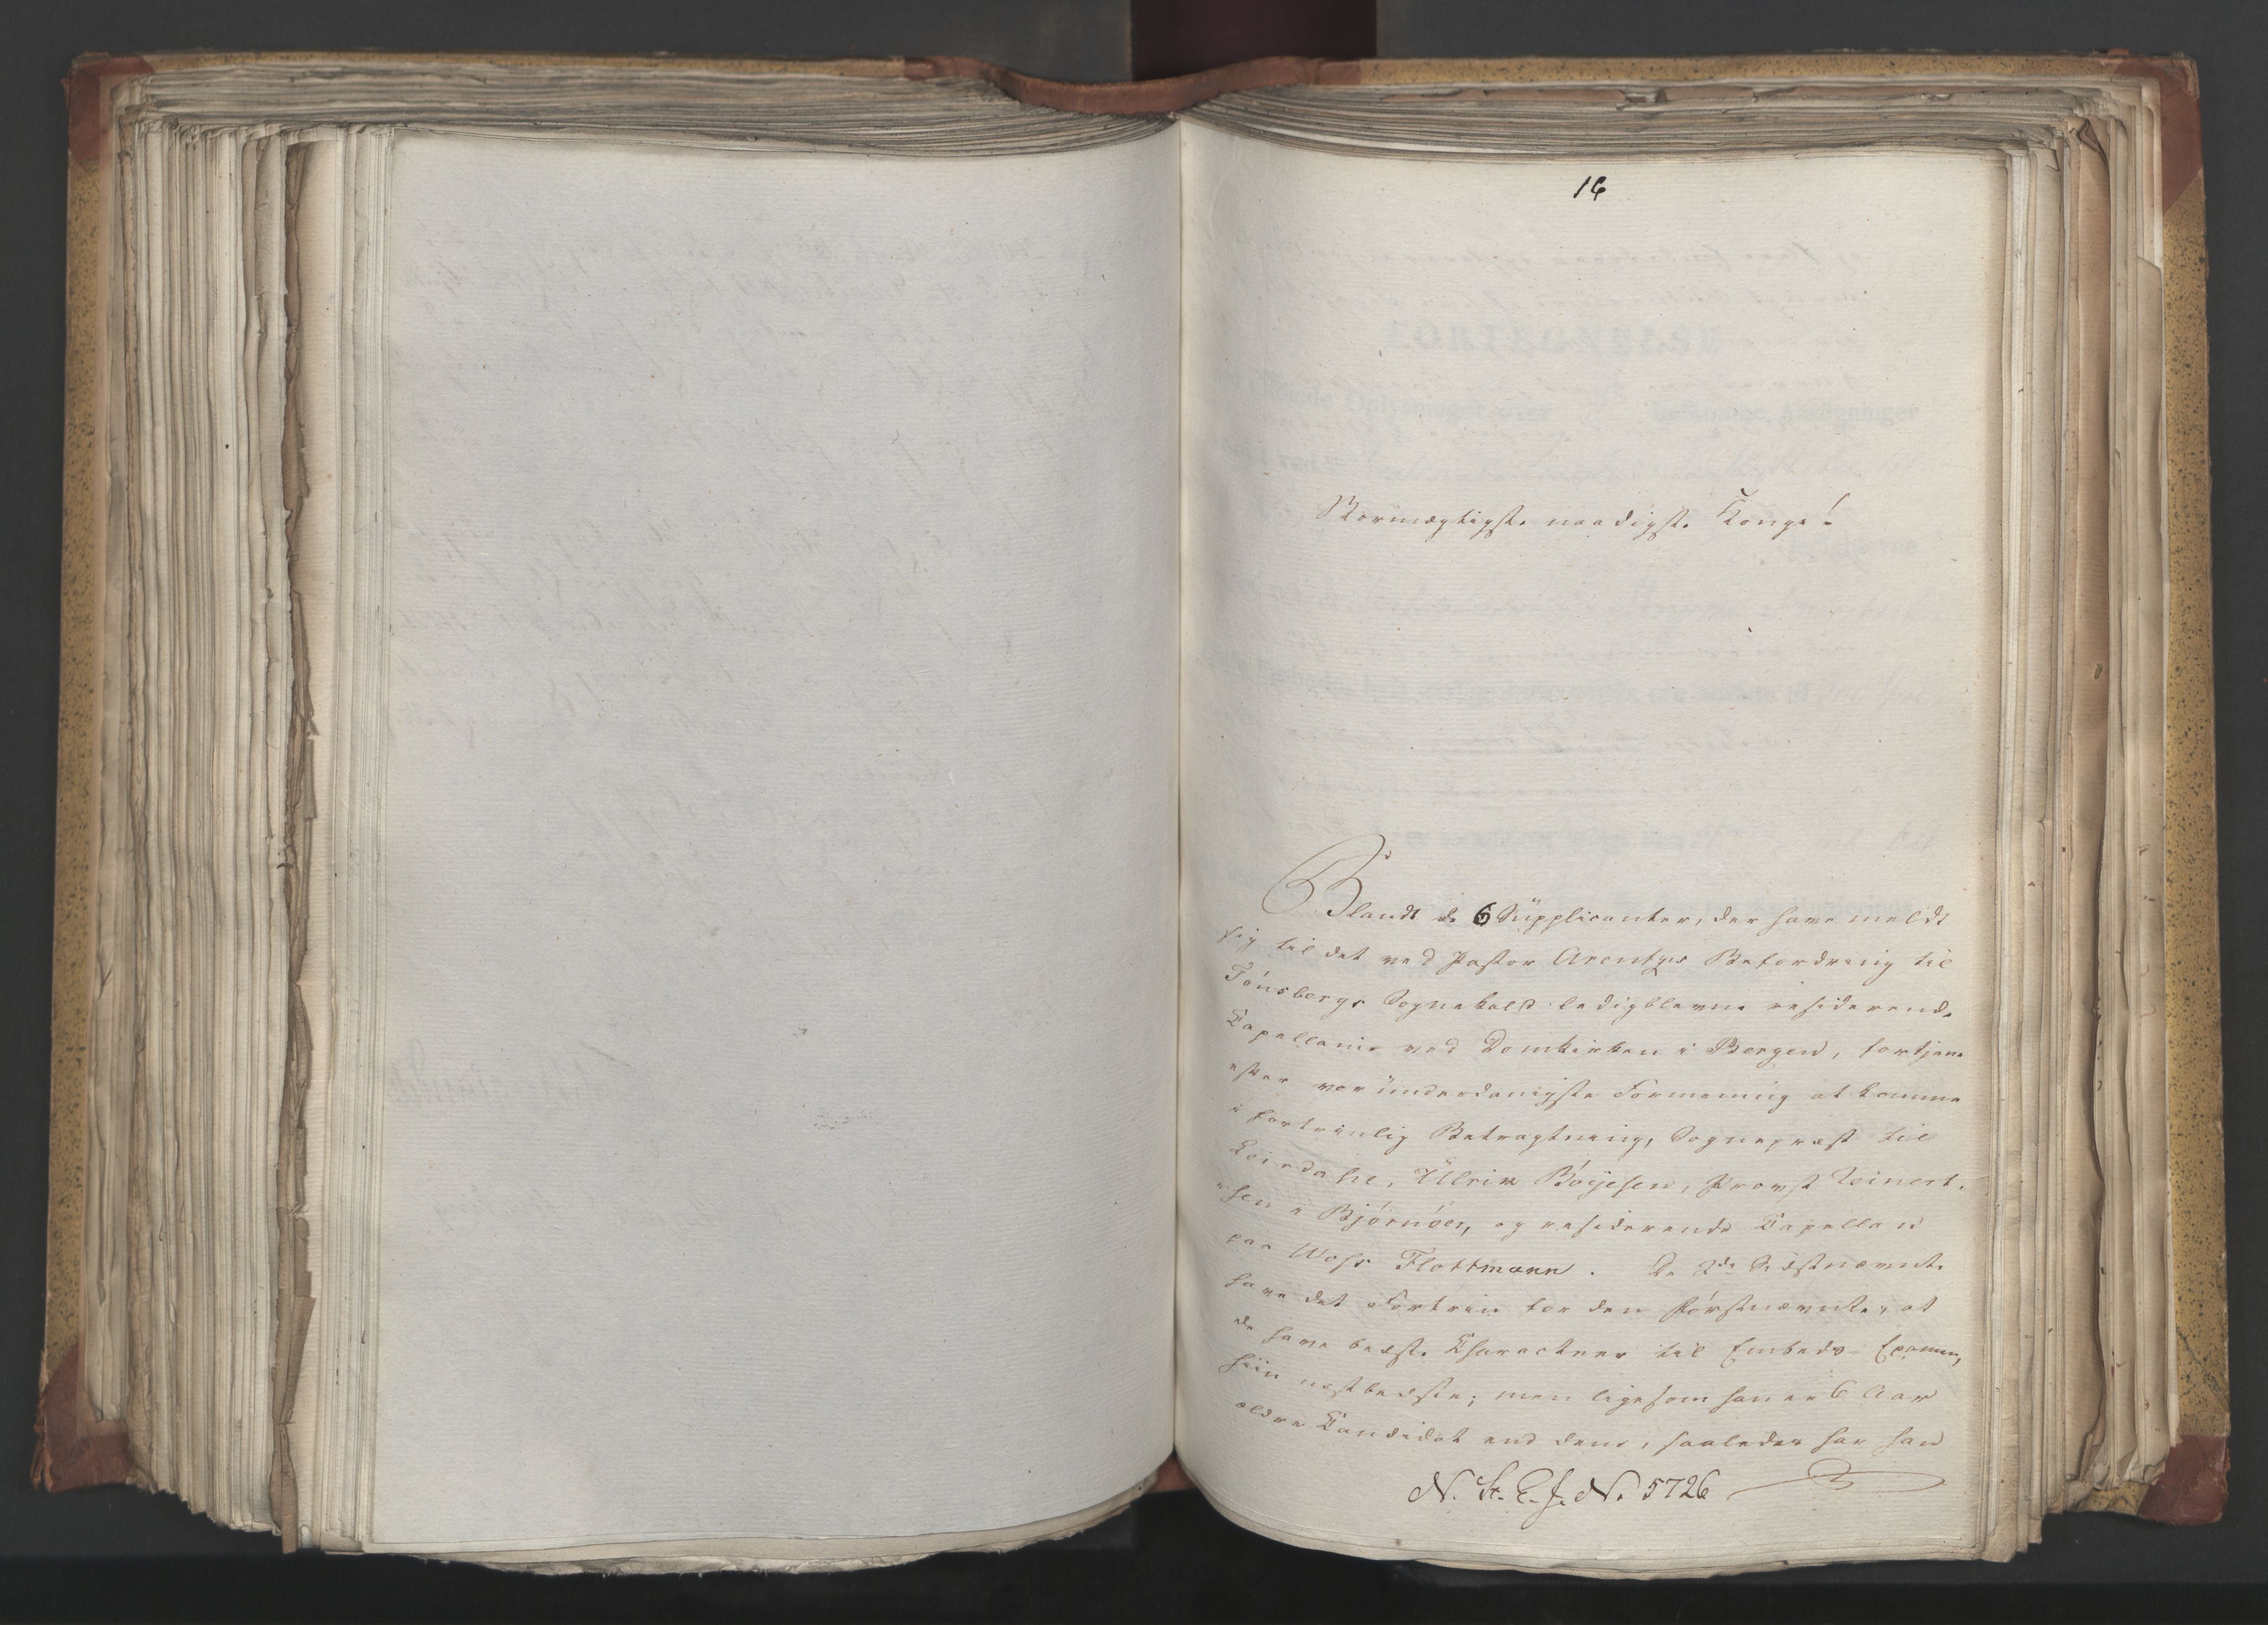 16
Stormægtigste naadigste Konge!
Blandt de 6 Supplicanter, der have meldt
sig til det ved Pastor Arentzes Befordring til
Tönsbergs Sognekald ledigblevne residerende
Capellanie ved Domkirken i Bergen, fortjene
efter vor underdanigste Formening at komme
i fortrinlig Betragtning, Sognepræst til
Leirdahl, Ulrik Böyesen, Provst Leinert-
sen i Björnöer, og residerende Capellan
paa Woss Flottmann. De 2de Sidstnævnte
have det Fortrin for den Förstnævnte, at
de have bedste Charakteer til Embeds-Examen,
hiin næstbedste; men ligesom han er 6 Aar
ældre Candidat end dem, saaledes har han
N. St. E. J. No 5726